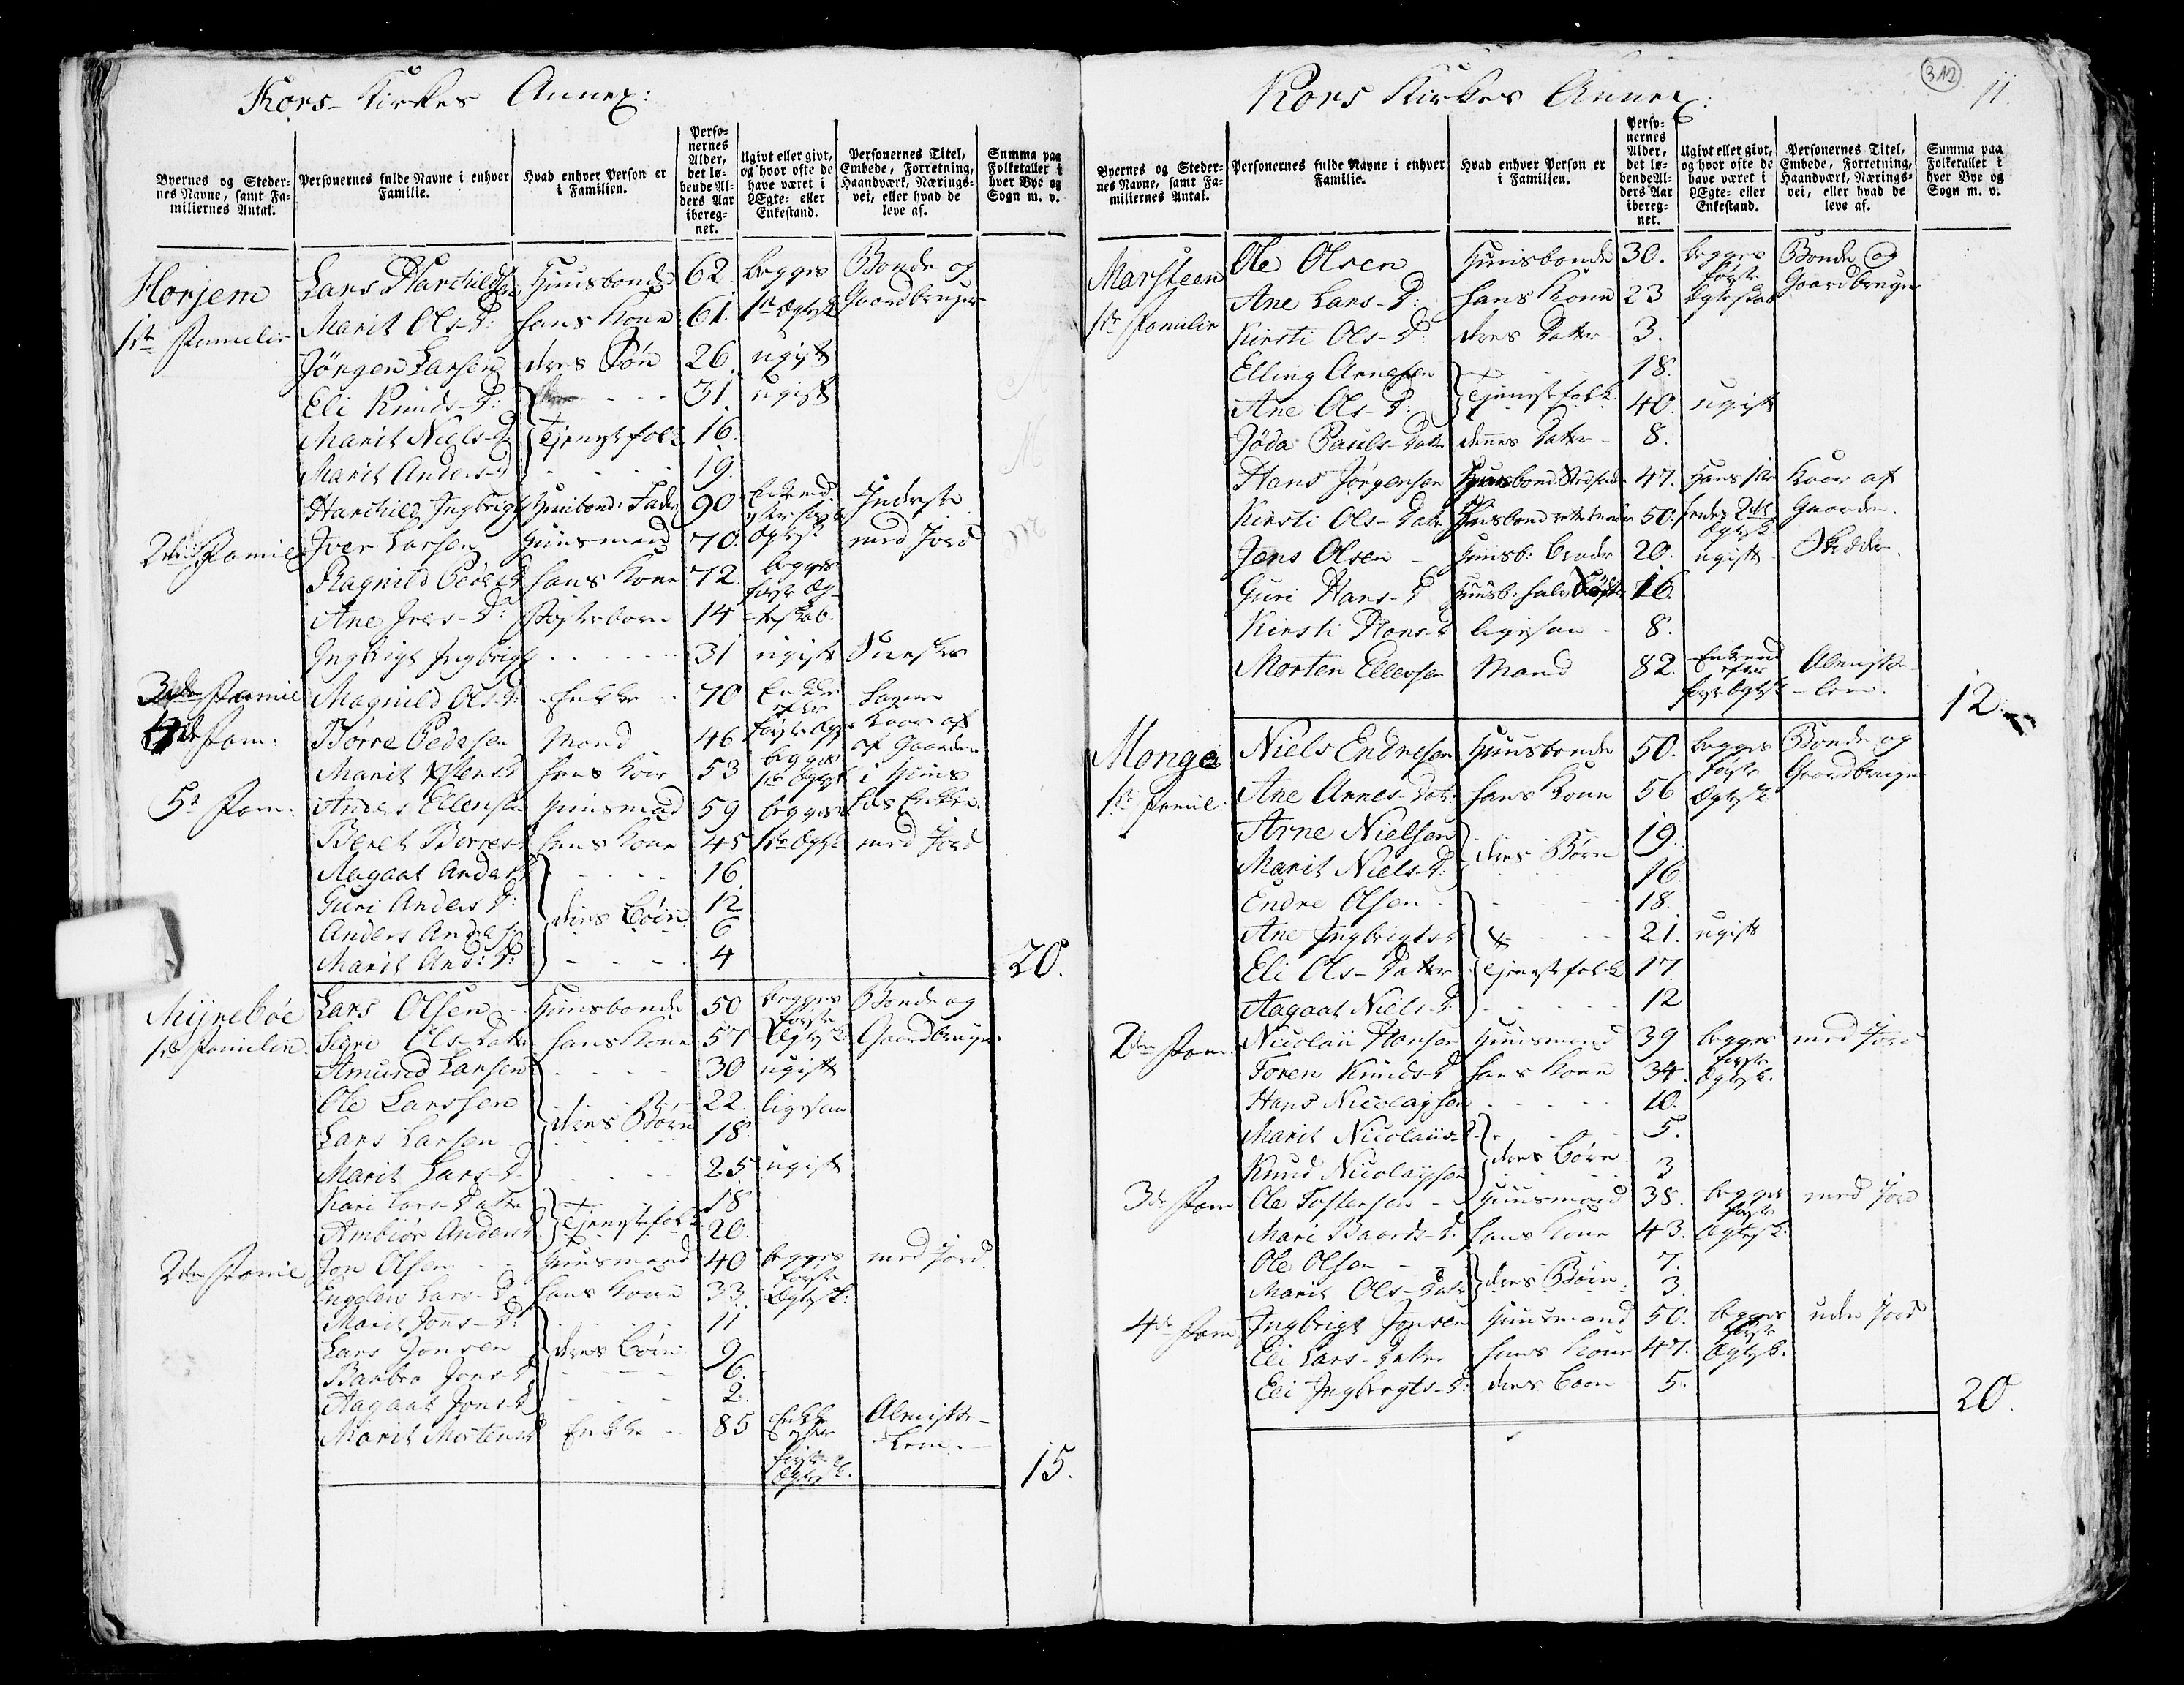 Kors-Kirkes Annex:
Byernes og Steder-
nes Navne, samt Fa-
miliernes Antal.
Personernes fulde Navne i enhver
Familie.
Hvad enhver Person er
i Familien.
Perso-
nernes
Alder,
det lø-
bende Al-
ders Aar
ibereg-
net.
Ugivt eller givt,
og hvor ofte de
have været i
Ægte- eller
Enkestand.
Personernes Titel,
Embede, Forretning,
Haandværk, Nærings-
vei, eller hvad de
leve af.
Summa paa
Folketallet i
hver Bye og
Sogn m. v.
Horjem Lars Huusbonde 62 begges Bonde og
1ste Familie Marit Ols-D: hans Kone 61. 1ste Ægtesk. Gaardbruger
Jörgen Larsen deres Sön 26. ugift
Eli Knuds-D: - - - 31. ugift
Marit Niels-D Tjenestfolk 16.
Marit Anders-D - - - 19.
Ingbrigts Huusbond: Fader 90 Inderste
2den Famil Iver Larsen Huusmand 70. Ægtesk. med Jord
Ragnild Peders-D hans Kone 72. begges
Ane Ivers-D: Fosterbarn 14 første Æg-
-teskab.
Ingbrigt Ingbrigts - - - 31 ugift
3die Famil Magnild Ols-D: Enke 70 Enke
4de Fam: Börre Pedersen Mand 46 Kaar af
Marit hans Kone 53 begges 1ste Ægtesk af Gaarden
5te Fam: Anders Ellensen Huusmand 59 begges
Beret Börres-D hans Kone 45 1ste Ægtesk med Jord
Aagaat Anders-D - - - 16.
Guri Anders D: deres Börn 12
Anders Anders: 6
Marit And: D: - - - 4 20.
Myreböe Lars Olsen Huusbonde 50 begges Bonde og
1ste Familie. Sigri Ols-Datter hans Kone 57 første Ægtesk: Gaardbruger
Amund Larsen - - - 30 ugift
Ole Larssen - - - 22. ligesaa
Lars Larsen deres Börn 18.
Marit Lars-D - - - 25 ugift
Kari Lars-Datter 18
Ambiör Anders-D Tjenestfolk 20.
2den Famil Jon Olsen Huusmand 40 begges med Jord.
Lars-D hans Kone 33. første Ægtesk:
Marit Jons-D: - - - 11
Lars Jonsen deres Börn 9
Barbro Jons-D - - - 6.
Aagaat Jons-D - - - 2.
Marit Mortens-D Enke 85 Enke efter Almisse-
første Ægtesk. -Lem.
15.
Kors Kirkes Annex:
312
11.
Byernes og Steder-
nes Navne, samt Fa-
miliernes Antal.
Personernes fulde Navne i enhver
Familie.
Hvad enhver Person er
i Familien.
Perso-
nernes
Alder,
det lø-
bende Al-
ders Aar
ibereg-
net.
Ugivt eller givt,
og hvor ofte de
have været i
Ægte- eller
Enkestand.
Personernes Titel,
Embede, Forretning,
Haandværk, Nærings-
vei, eller hvad de
leve af.
Summa paa
Folketallet i
hver Bye og
Sogn m. v.
Marsteen Ole Olsen Huusbonde 30. begges Bonde og
1ste Familie Ane Lars-D: hans Kone 23 første Ægteskab Gaardbruger
Kirsti Ols-D: deres Datter 3.
Elling Arnesen - - 18.
Ane Ols-D: Tjenestfolk 40. ugift
Jöda Pauls-Datter dennes Datter 8.
Hans Jörgensen Huusbond: Stedfader 47. Hans 1ste Kaar af
Kirsti Ols-Datter Huusbond rette Moder 50. hendes 2det Ægtesk: Gaarden.
Jens Olsen Huusb: Broder 20. ugift Skrædder.
Guri Hans-D Huusb: halv 16.
Kirsti Hans-D ligesaa 8.
Morten Ellevsen Mand 82. Enkemand efter Almisse-
første Ægtesk -lem.
12.
Monge Niels Endresen Huusbonde 50. begges Bonde og
1ste Famil: Ane Arnes-Datr: hans Kone 56 første Ægtesk: Gaardbruger
Arne Nielsen 19.
Marit Niels-D: deres Börn 16.
Endre Olsen - - - 18.
Ane Ingbrigts-D 21. ugift
Eli Ols-Datter Tjenestfolk 17.
Aagaat Niels-D - - - 12
2den Fam: Nicolaii Hansen Huusmand 39 begges med Jord
Toren Knuds-D hans Kone 34. første Ægtesk.
Hans Nicolaysen - - - 10.
Marit Nicolaiis-D - - 5.
Knud Nicolaysen deres Börn 3
3de Fam Ole Tostensen Huusmand 38. begges med Jord
Mari Baards-D. hans Kone 43. første Ægtesk:
Ole Olsen - - 7.
Marit Ols-Datr deres Börn. 3.
4de Fam Ingbrigt Jonsen Huusmand 50. begges uden Jord
Eli Lars-Datter hans Kone 47. første Ægtesk.
Eli Ingbrigts-D: deres Barn 5.
20.